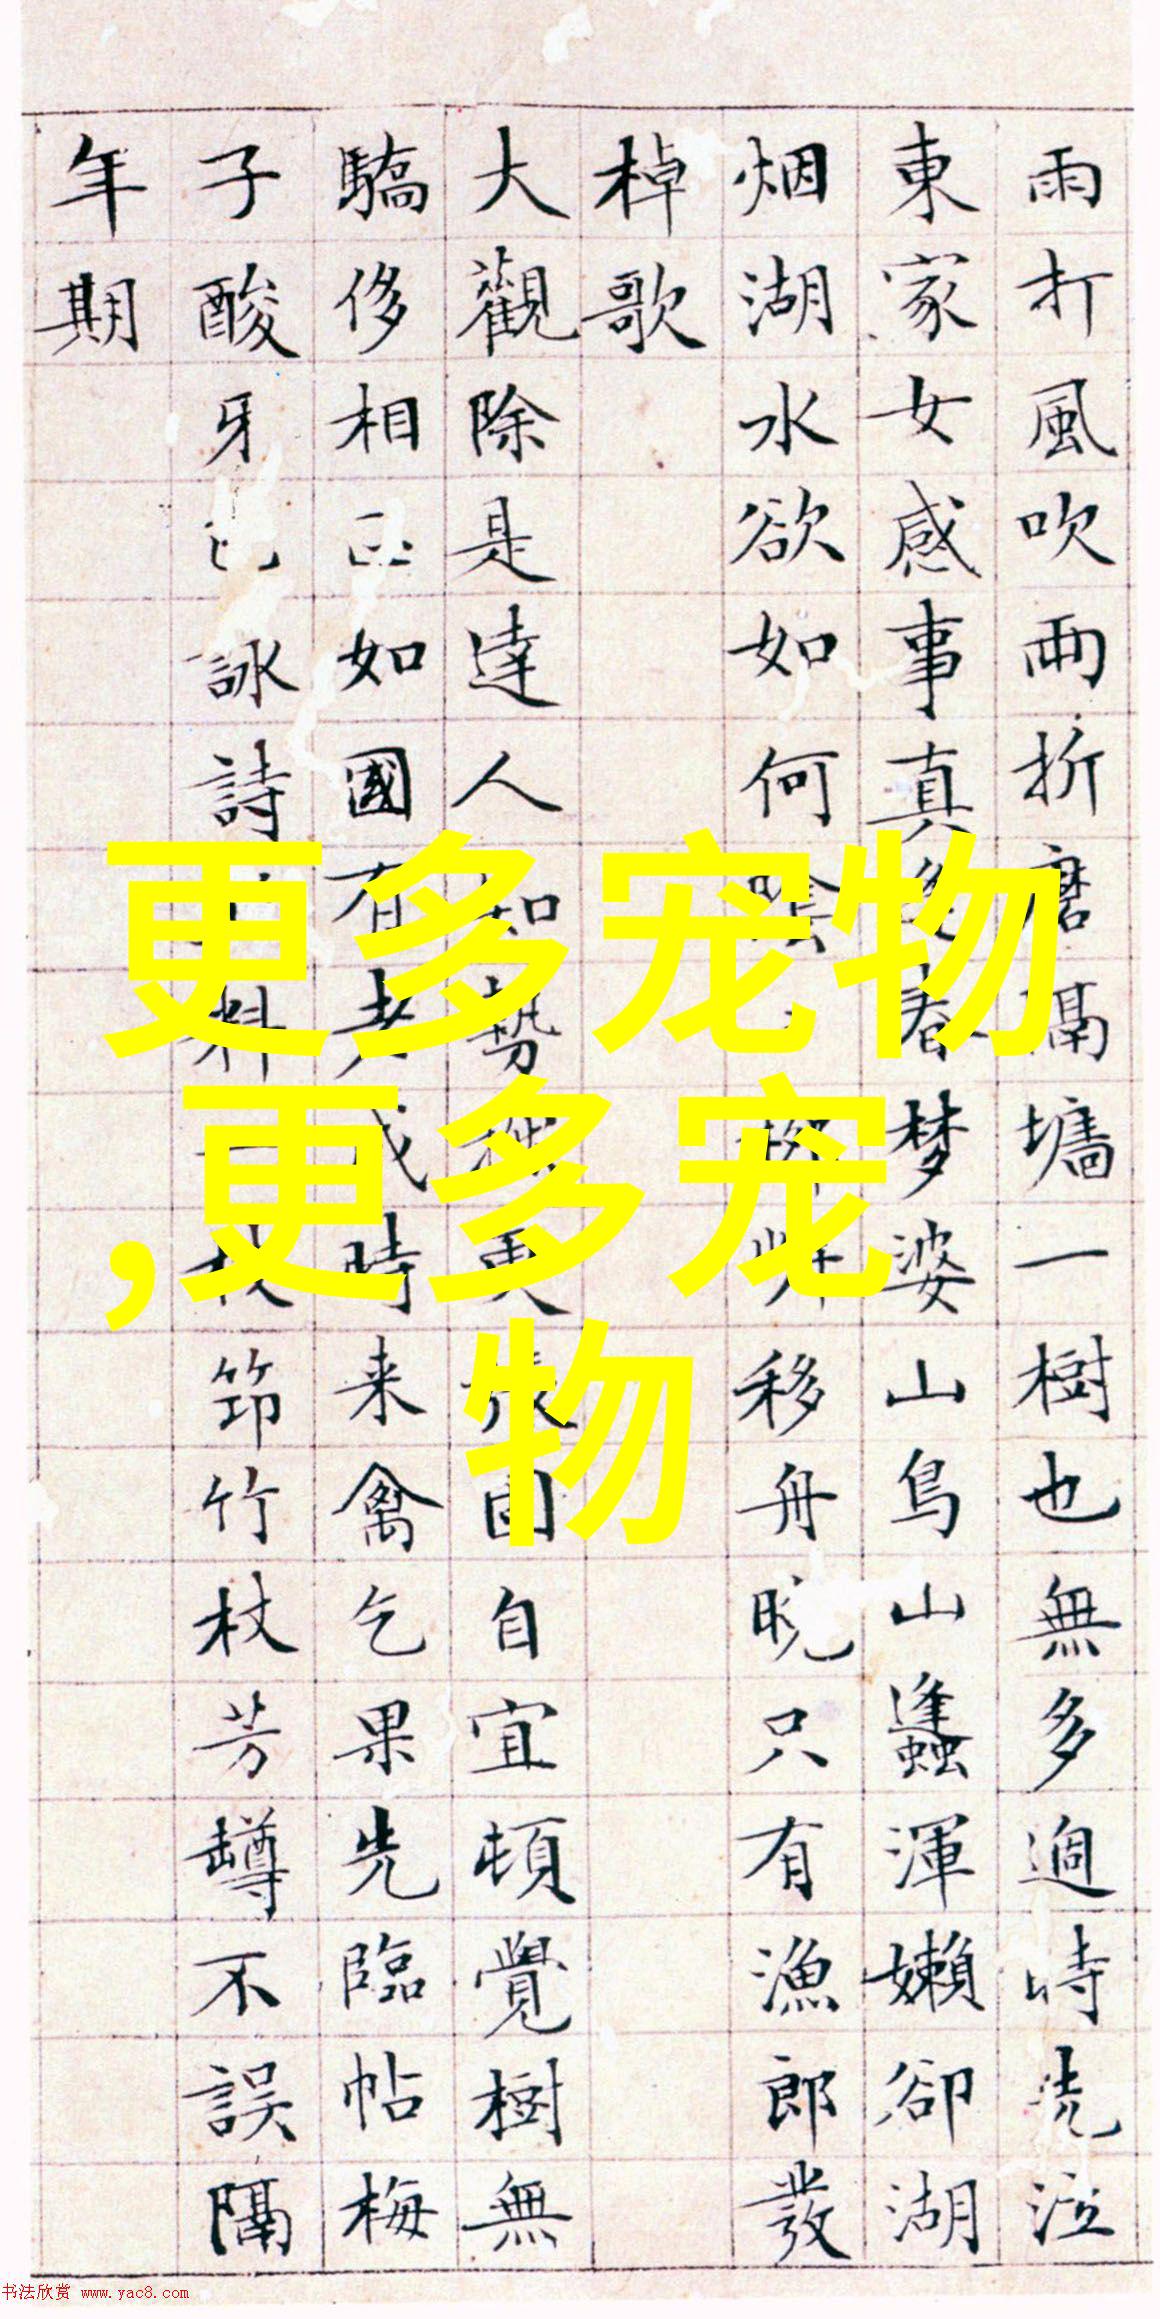 雨打風吹兩折磨隔墻一樹也無多過時泣
東家女感事真春梦婆山鳥山蠭渾嬾卻湖
烟湖水欲如何陰柳岸移舟晚只有漁郎發
棹歌
大觀除是達人知勢更張園自宜頓覺樹無
驕侈相如國有老成時来禽乞果先臨帖梅
子酸牙詠詩料一枝筇竹杖芳罇不誤隔
年期
更多宠物
,更多宠
物
书法欣赏 www.yac8.com